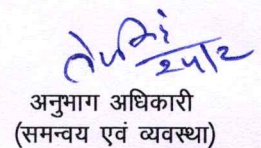 24/2
अनुभाग अधिकारी
(समन्वय एवं व्यवस्था)